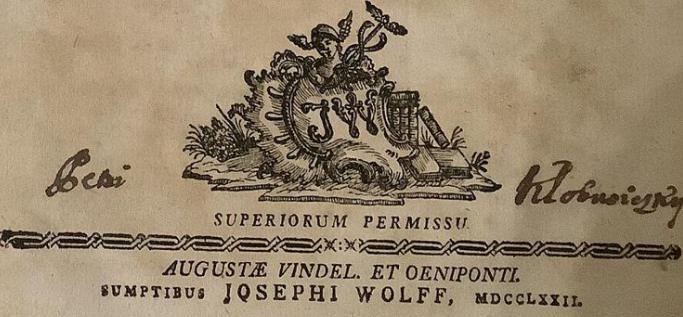 JW
Petri Kłobusiczky
SUPERIORUM PERMISSU.
AUGUSTÆ VINDEL. ET OENIPONTI.
SUMPTIBUS JOSEPHI WOLFF, MDCCLXXII.